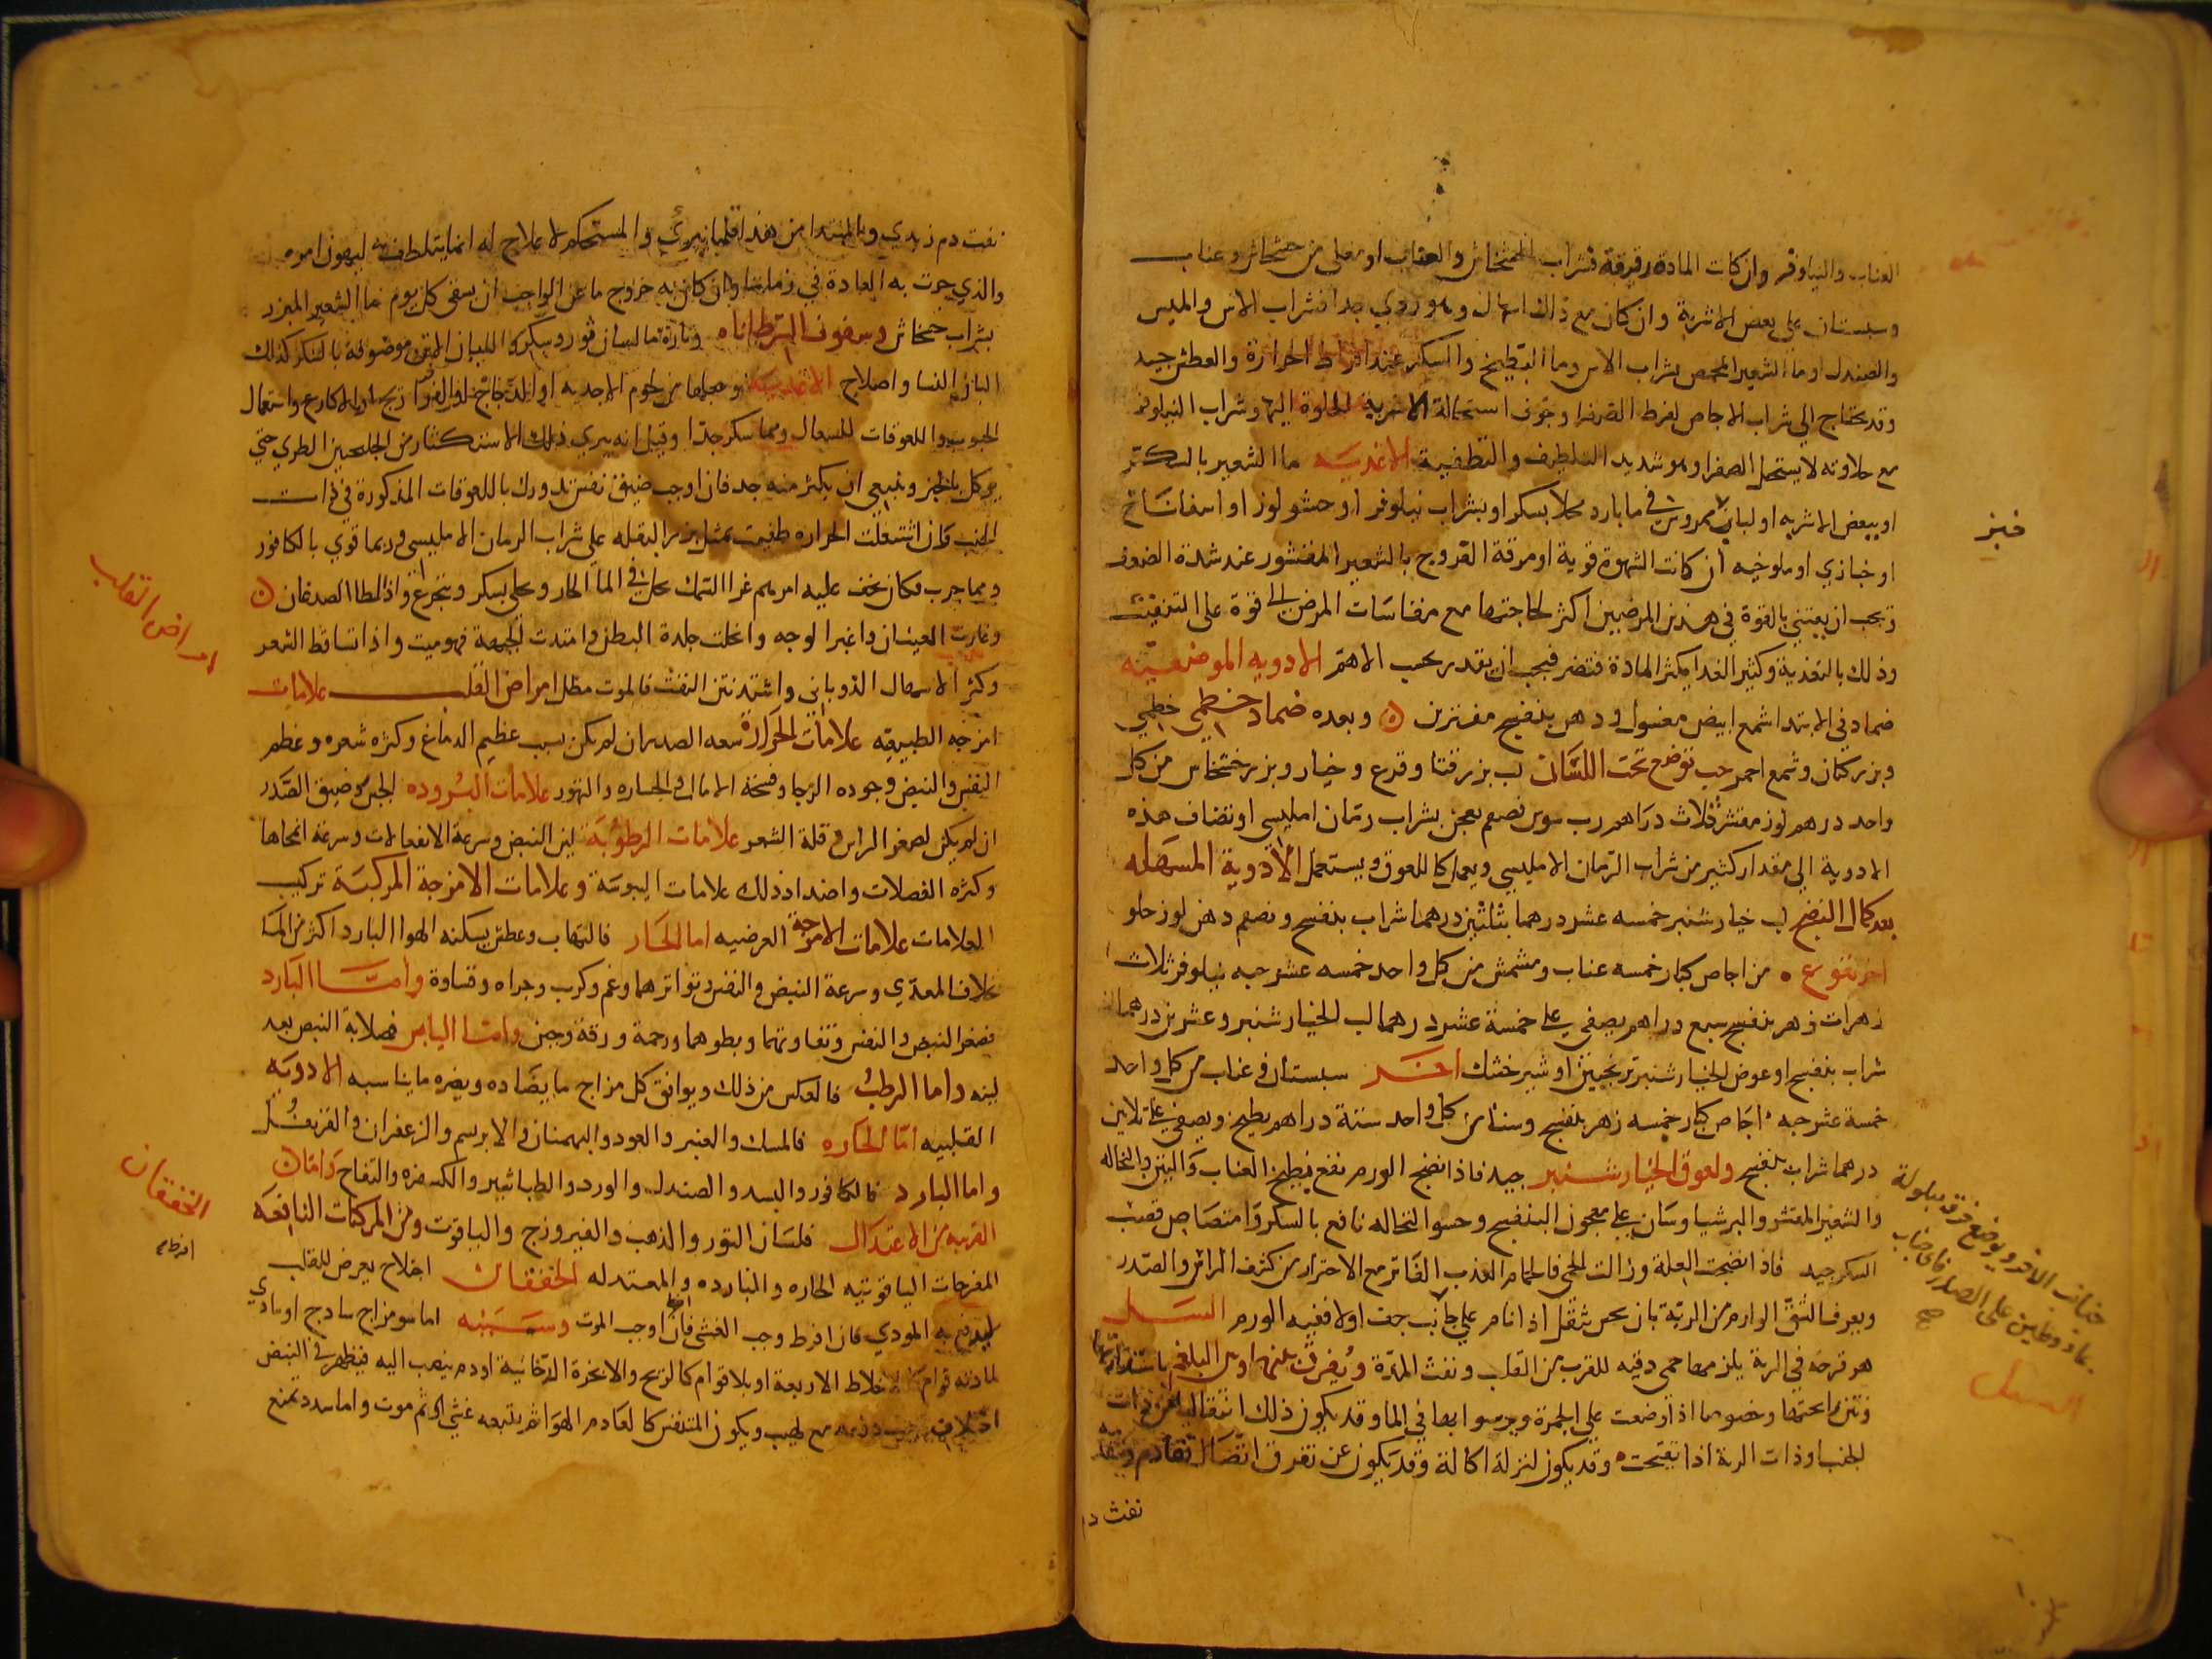 العناب والنيلوفر وان كانت المادة رقيقة فشراب الخشخاش والعناب او مغلى من خشخاش وعناب
وسبستان على بعض الاشربة وان كان مع ذلك اسهال وهو ردي جدا فشراب الاس والميس
والصندل او ما الشعير المحمص بشراب الاس وما البطيخ والسكر عند افراط الحرارة والعطش جيد
وقد يحتاج الى شراب الاجاص لفرط الصفرا وخوف استحالة الاشربة الحلوة اليها وشراب النيلوفر
مع حلاوته لا يستحيل الصفرا وهو شديد التلطيف والتطفية الاغذيه ما الشعير بالسكر
او ببعض الاشربه او لباب خبز في ما بارد محلا بسكر او بشراب نيلوفر او حشو لوز او اسفاناخ
خبز
او خبازي او ملوخيه ان كانت الشهوة قوية او مرقة الفروج بالشعير المقشور عند شدة الضعف
ويجب ان يعتني بالقوة في هذين المرضين اكثر لحاجتهما مع مقاسات المرض الى قوة على التنفيث
وذلك بالتغذية وكثير الغدا يكثر المادة فتضر فيجب ان يقدر بحسب الاهم الادويه الموضعيه
ضماد في الابتدا شمع ابيض مغسول ودهن بنفسج مفترين وبعده ضماد خطمي
وبزر كتان وشمع احمر حب توضع تحت اللسان لب بزر قثا وقرع وخيار وبزر خشخاش من كل
واحد درهم لوز مقشر ثلاث دراهم رب سوس نصفهم يعجن بشراب رمان امليسي او تضاف هذه
الادوية الى مقدار كثير من شراب الرمان الامليسي ويعمل كاللعوق ويستعمل الادوية المسهله
بعد كمال النضج لب خيار شنبر خمسه عشر درهما بثلثين درهما شراب بنفسج ونصفهم دهن لوز حلو
اخر نقوع من اجاص كبار خمسه عناب ومشمش من كل واحد خمسه عشر حبه نيلوفر ثلاث
زهرات زهر بنفسج سبع دراهم يصفى على خمسة عشر درهما لب الخيار شنبر وعشرين درهما
شراب بنفسج او عوض الخيار شنبر ترنجبين او شير خشك اخر سبستان وعناب من كل واحد
خمسة عشر حبه اجاص كبار خمسه زهر بنفسج وسنا من كل واحد ستة دراهم يطبخ ويصفى على ثلاثين
درهما شراب بنفسج ولعوق الخيار شنبر جيد فاذا نضج الورم نفع طبيخ العناب والتين والنخاله
والشعير المقشر والبرشياوشان على معجون البنفسج وحسو النخاله نافع بالسكر وامتصاص قصب
السكر جيد فاذا نضجت العلة وزالت الحمى فالحمام العذب الفاتر مع الاحتراز من كشف الراس والصدر
ويعرف الشق الوارم من الرية بان يحس بثقل اذا نام على جانب جهة اولا ففيه الورم السل
هو قرحه في الرية يلزمها حمى دقيه للقرب من القلب ونفث المدة ويفرق بينها وبين البلغم
ونتن رائحتها وخصوصا اذا وضعت على الجمرة وبرسوبها في الما وقد يكون ذلك انتقاليا من ذات
الجنب او ذات الرية اذا تقيحت وقد يكون لنزلة اكالة وقد يكون عن تفرق اتصال تقادم
نفث د
السل
نفث دم زبدي والمبتدا من هذا قلما يبرئ والمستحكم لا علاج له انما يتلطف به ليهون امره
والذي جرت به العادة في زماننا وان كان به خروج ما عن الواجب ان يسقى كل يوم ما الشعير المبزر
بشراب خشخاش وسفوف السرطاناه وتارة ما لسان ثور وسكر واللبان الاتن موصوفة بالسكر كذلك
البان النسا واصلاح الاغذيه وجعلها من لحوم الاجديه او الدجاج او الفراريج او الاكارع واستعمال
الحبوب واللعوقات للسعال ومما سكر جدا وقيل انه يبري ذلك الاستكثار من الجلنجبين الطري حتي
يوكل بالخبز وينبغي ان يكثر منه جدا فان اوجب ضيق نفس تدورك باللعوقات المذكورة في ذات
الجنب وان اشتعلت الحراره طفيت بمثل بزر البقله علي شراب الرمان الامليسي وربما قوي بالكافور
ومما جرب فكان يخف عليه امرهم غرا السمك يحل في الما الحار ويحلى بسكر ويتجرع واذا لطا الصدغان
وغارت العينان واغبر الوجه وانحلت جلدة البطن وامتدت الجبهة فهو ميت واذا تساقط الشعر
وكثر الاسهال الذوباني واشتد نتن النفث فالموت مطل امراض القلب علامات
امراض القلب
امزجه الطبيعيه علامات الحرارة سعه الصدر ان لم يكن بسبب عظيم الدماغ وكثره شعره وعظم
النفس والنبض وجوده الرجا وفسحة الامال والجساره والتهور علامات البروده الجبن وضيق الصدر
ان لم يكن لصغر الراس وقلة الشعر علامات الرطوبة لين النبض وسرعة الانفعالات وسرعة انمحاها
وكثره الفضلات واضداد ذلك علامات اليبوسة وعلامات الامزجة المركبة تركيب
العلامات علامات الامزجة العرضيه اما الحار فالتهاب وعطش يسكنه الهوا البارد اكثر من الما
خلاف المعدي وسرعة النبض والنفس وتواترهما وغم وكرب وجراه وقساوة واما البارد
فصغر النبض والنفس وتفاوتهما وبطوهما ورحمة ورقة وجبن واما اليابس فصلابة النبض بعد
لينه واما الرطب فالعكس من ذلك ويوافق كل مزاج ما يضاده ويضره ما يناسبه الادويه
القلبيه اما الحاره فالمسك والعنبر والعود والبهمنان والابريسم والزعفران والقرنفل
واما البارد فالكافور والبسد والصندل والورد والطباشير والكسفره والتفاح واما
القريبه من الاعتدال فلسان الثور والذهب والفيروزج والياقوت ومن المركبات النافعه
المفرحات الياقوتيه الحاره والبارده والمعتدله الخفقان اختلاج يعرض للقلب
الخفقان
ليدفع به الموذي فان افرط وجب الغشى فان افرط اوجب الموت وسببه اما سو مزاج ساذج او مادي
لمادته قوام كالاخلاط الاربعة او بلا قوام كالريح والابخرة الدخانية او دم ينصب اليه فيظهر في النبض
اختلاف مع لهيب ويكون المتنفس كالعادم الهوا ثم يتبعه غشي ثم موت واما سدد تمنع